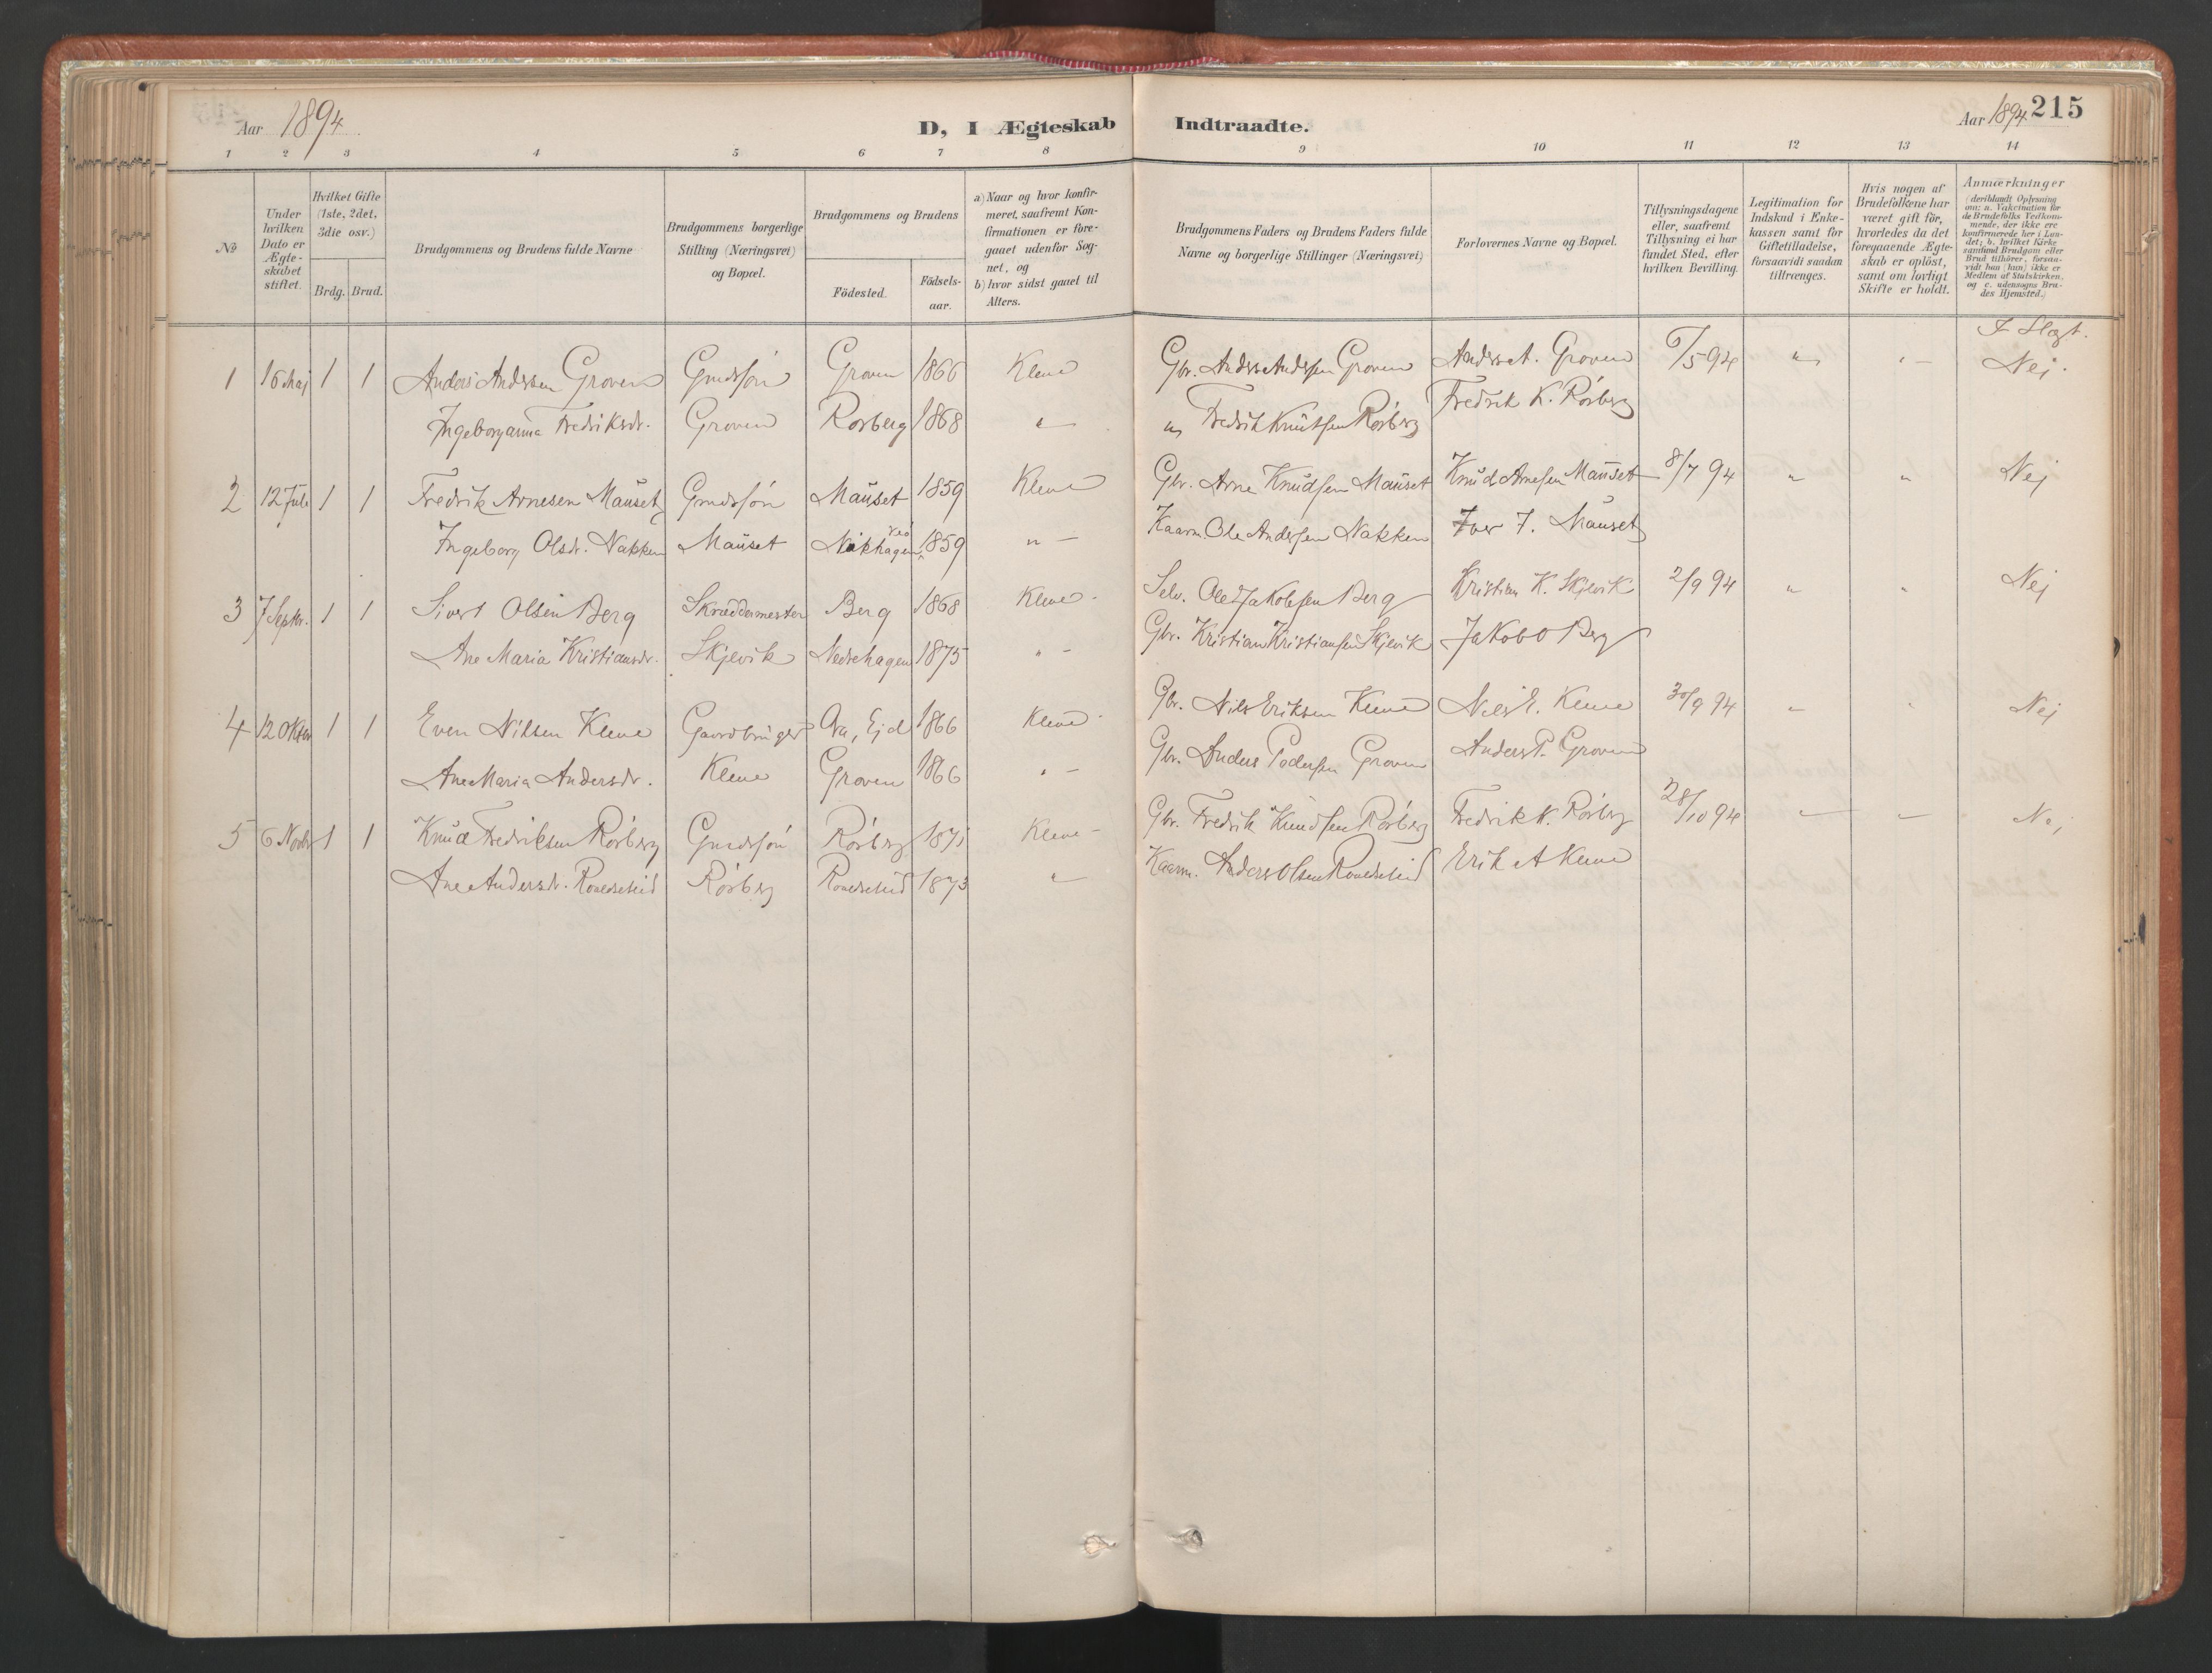 Aar 1894 D, I Ægteskab Indtraadte. Aar 1894 215
1 2 3 4 5 6 7 8 9 10 11 12 13 14
№
Under hvilken Dato er Ægteskabet stiftet.
Hvilket Gifte (1ste, 2det, 3die osv.)
Brdg. Brud.
Brudgommens og Brudens fulde Navne
Brudgommens borgerlige Stilling (Næringsvei) og Bopæl.
Brudgommens og Brudens
Födested. Födsels-aar.
a) Naar og hvor konfirmeret, saafremt Konfirmationen er foregaaet udenfor Sognet, og
b) hvor sidst gaaet til Alters.
Brudgommens Faders og Brudens Faders fulde Navne og borgerlige Stillinger (Næringsvei)
Forlovernes Navne og Bopæl.
Tillysningsdagene eller, saafremt Tillysning ei har fundet Sted, efter hvilken Bevilling.
Legitimation for Indskud i Enkekassen samt for Giftetilladelse, forsaavidt saadan tiltrænges.
Hvis nogen af Brudefolkene har været gift för, hvorledes da det foregaaende Ægteskab er oplöst, samt om lovligt Skifte er holdt.
Anmærkninger (deriblandt Oplysning om: a. Vakcination for de Brudefolks Vedkommende, der ikke ere konfirmerede her i Landet; b. hvilket Kirkesamfund Brudgom eller Brud tilhörer, forsaavidt han (hun) ikke er Medlem af Statskirken, og c. udensogns Brudes Hjemsted.)
I Slægt.
1 16 Maj 1 1 Anders Andersen Groven Grmdssön Groven 1866 Kleve Gbr. Anders Andersen Groven Anders A. Groven 6/5 94 " " Nej.
Ingeborganna Fredriksdr. Groven Rørberg 1868 " " Fredrik Knutsen Rørberg Fredrik K. Rørberg
2 12 Juli 1 1 Fredrik Arnesen Mauset Grmdssön Mauset 1859 Kleve Gbr. Arne Knudsen Mauset Knud Arnesen Mauset 8/7 94 " " Nej
Ingeborg Olsdr. Nakken Mauset 1859 " Kaarm. Ole Andersen Nakken Iver I. Mauset
3 7 Septbr. 1 1 Sivert Olsen Berg Skræddermester Berg 1868 Kleve Selv. Ole Jakobsen Berg Kristian K. Skjevik 2/9 94 " " Nej
Ane Maria Kristiansdr. Skjevik Nedrehagen 1875 " Gbr. Kristian Kristiansen Skjevik Jakob O Berg
4 12 Oktbr 1 1 Even Nilsen Kleve Gaardbruger 1866 Kleve Gbr. Nils Eriksen Kleve Nils E. Kleve 30/9 94 " " Nej
Ane Maria Andersdr. Kleve Groven 1866 " Gbr. Anders Pedersen Groven Anders P. Groven
5 6 Novbr 1 1 Knud Fredriksen Rørberg Grmdssön Rørberg 1871 Kleve Gbr. Fredrik Knudsen Rørberg Fredrik K. Rørberg 28/10 94 " " Nej
Ane Andersdr. Rørberg 1873 " Kaarm. Anders Olsen Erik A Kleve